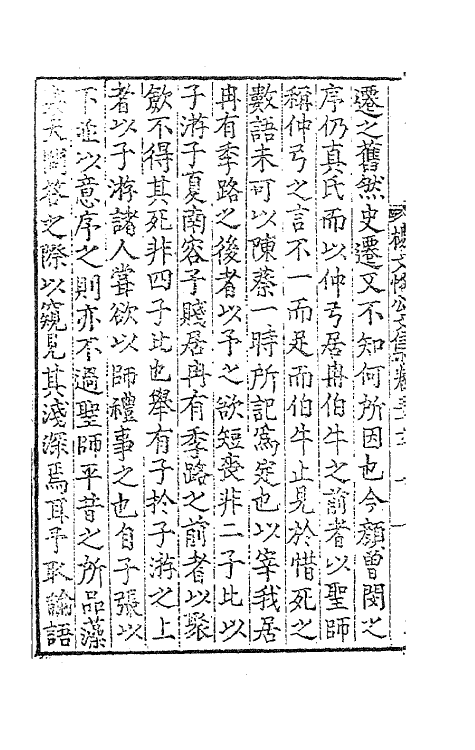 遷之舊然史遷又不知何所因也今顏曾閔之
序仍真氏而以仲弓居冉伯牛之前者以聖師
稱仲弓之言不一而足而伯牛止見於惜死之
數語未可以陳蔡一時所記為定也以宰我居
冉有季路之後者以予之欲短喪非二子比以
子游子夏南容子賤居冉有季路之前者以聚
斂不得其死非四子比也舉有子於子游之上
者以子游諸人嘗欲以師禮事之也自子張以
下並以意序之則亦不過聖師平昔之所品藻
與夫問答之際以窺見其淺深焉耳予取論語